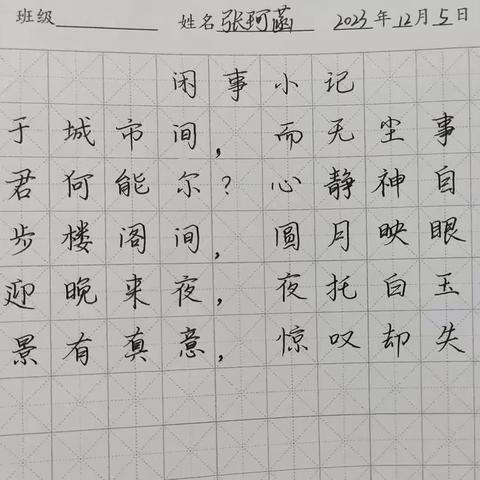 班级 姓名 张珂菡 2023年12月5日
闲事小记
于城市间，而无尘事
君何能尔？心静神自
步楼阁间，圆月映眼
迎晚来夜，夜托白玉
景有真意，惊叹却失